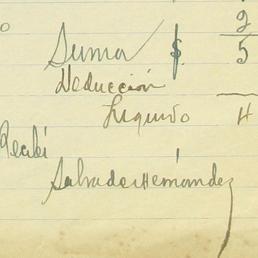 2
Suma $ 5
Deducción
Liquido 4
Recibí
Salvador Hernandez